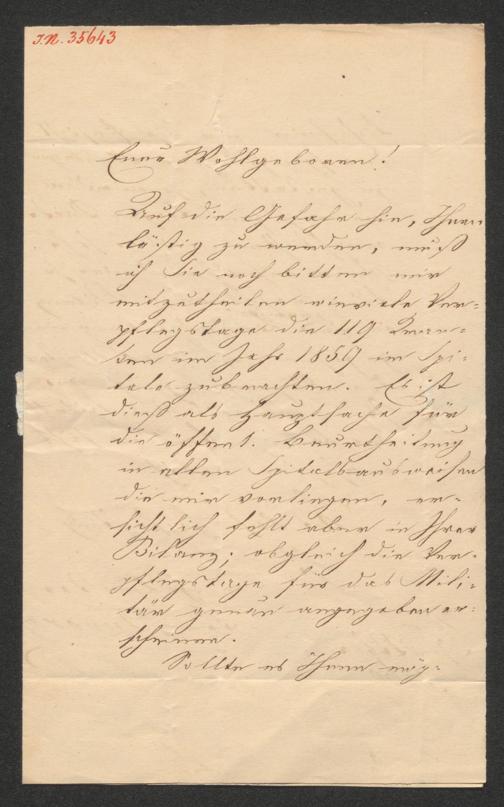 I.N. 35643
Euer Wohlgeboren!
Auf die Gefahr hin, Ihnen
lästig zu werden, muß
ich Sie noch bitten mir
mitzutheilen wieviele Ver-
pflegstage die 119 Kran-
ken im Jahr 1859 im Spi-
tale zubrachten. Es ist
dieß als Hauptsache für
die öffent. Beurtheilung
in allen Spitalsausweisen
die mir vorliegen, er-
sichtlich fehlt aber in Ihrer
Bilanz; obgleich die Ver-
pflegstage für das Mili-
tär genau angegeben er-
scheinen.
Sollte es Ihnen mög-